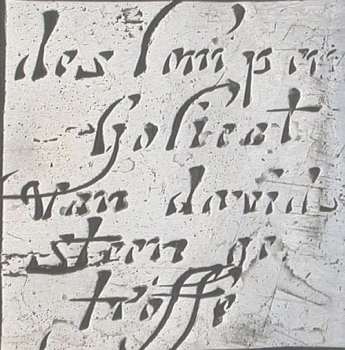 des
Golieat
van david
stern ge
troffe